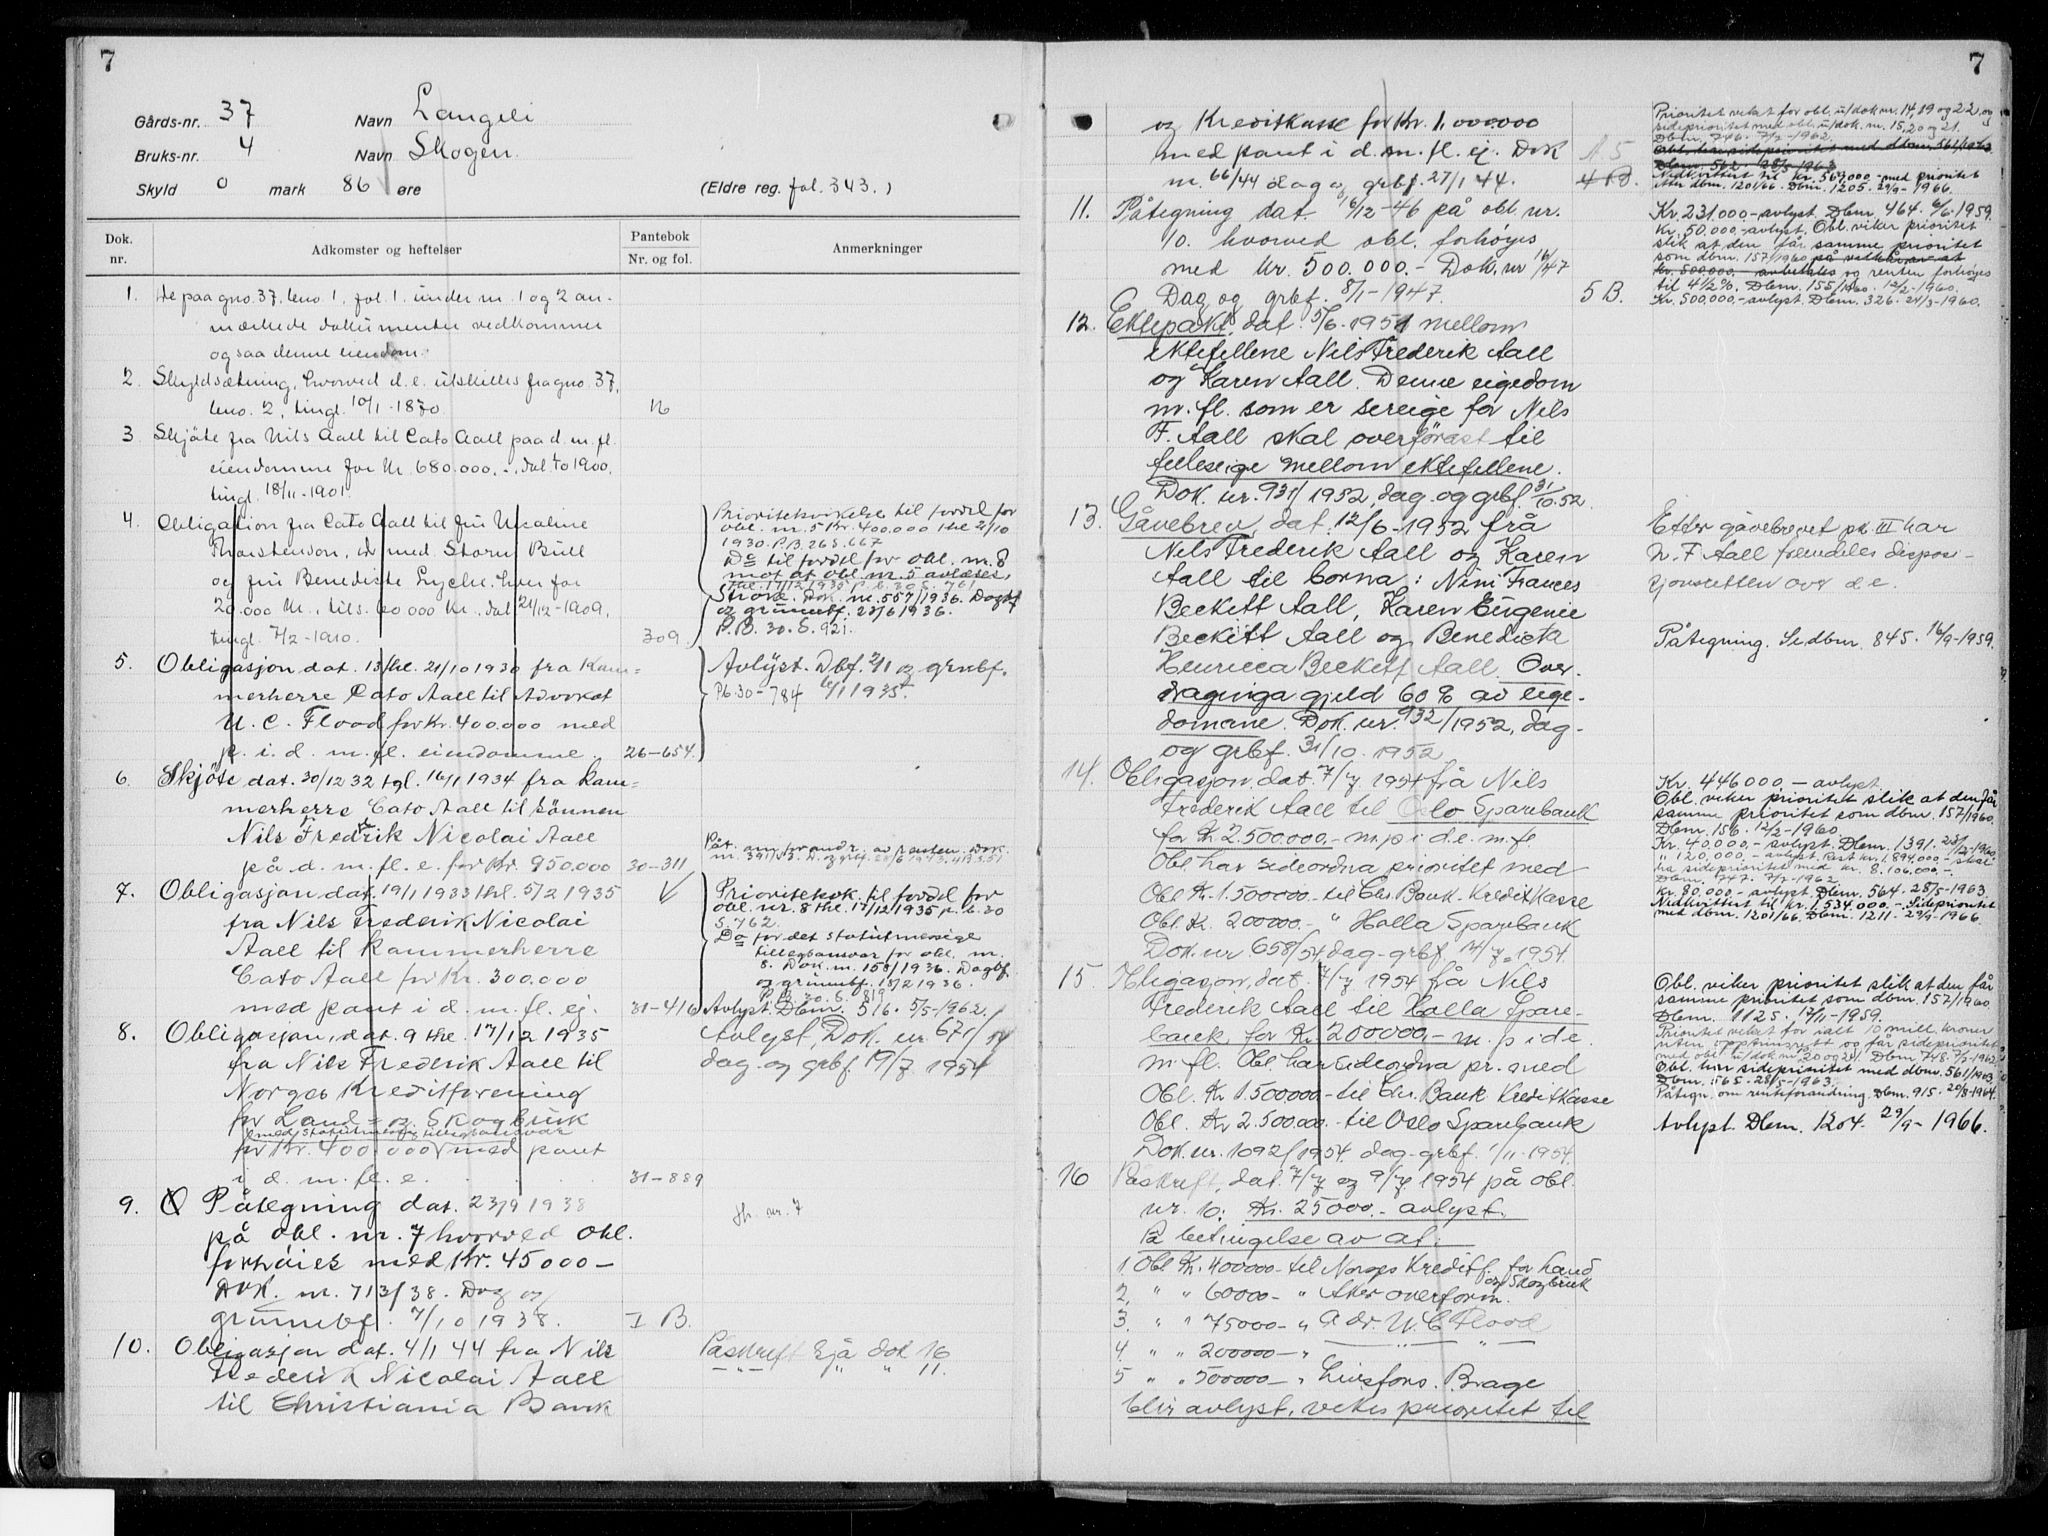 7
Gårds-nr. 37 Navn Langeli
Bruks-nr. 4 Navn Skogen
Skyld 0 mark 86 øre (Eldre reg. fol. 343.)
Dok. nr. Adkomster og heftelser Pantebok Nr. og fol. Anmerkninger
1. De paa gno. 37, bno. 1, fol. 1. under nr. 1 og 2 an-
mærkede dokumenter vedkommer
ogsaa denne eiendom.
2. Skyldsætning, hvorved d. e. utskilles fra gno. 37,
bno. 2, tingl. 10/1-1870. 16
3. Skjöte fra Nils Aall til Cato Aall paa d. m. fl.
eiendomme for Kr. 680.000.-, dat. 1900,
tingl. 18/11-1901.
4. Obligation fra Cato Aall til fru Ursaline
Thorstenson, med Storm Bull
og fru Benedicte Lyche, hver for
20.000 Kr., tils. 60 000 Kr., dat. 21/12-1909,
tingl. 7/2-1910. 309.
Prioritetsvikelse til fordel for
obl. nr. 5 Kr. 400.000 thl. 21/10
1930. P.B. 26 S. 667
Do til fordel for obl. nr. 8
mot at obl. nr. 5 avlæses,
thl. 17/12 1935 p. b. 30 S. 761
Strøke. Dok. nr. 557/1936. Dagbf
og grunnbf. 23/6 1936.
P.B. 30. S. 921.
5. Obligasjon dat. 13 thl. 21/10 1930 fra Kam-
merherre Cato Aall til Advokat
U. C. Flood for kr. 400.000 med
p. i. d. m. fl. eiendomme. 26-654.
Avlyst. Dbf. 2/1 og grnbf.
Pb 30-784 6/1 1935.
6. Skjöte dat. 30/12 32 tgl. 16/1 1934 fra kam-
merherre Cato Aall til sönnen
Nils Fredrik Nicolai Aall
på d. m. fl. e. for Kr. 950.000 30-311
Påt. om forandr. av renten. Dok.
7. Obligasjon dat. 19/1 1933 thl. 5/2 1935
fra Nils Frederik Nicolai
Aall til kammerherre
Cato Aall for Kr. 300.000
med pant i d. m. fl. ej. 31-416
Prioritetsvik. til fordel for
obl. nr. 8 thl. 17/12 1935 p. b. 30
S. 762.
Do for det statutmessige
tilleggsansvar for obl. nr.
8. Dok. nr. 158/1936. Dagbf.
og grunnbf. 18/2 1936.
P.B. 30. S. 819
Avlyst. Dbnr. 516. 5/5-1962.
8. Obligasjon, dat. 9 thl. 17/12 1935
fra Nils Frederik Aall til
Norges Kreditforening
for Land- og Skogbruk
med statutmessig tilleggsansvar
for Kr. 400.000 med pant
i d. m. fl. e. 31-889
Avlyst, Dok. nr. 671/54
dag- og grbf. 19/7 1954
9. Påtegning dat. 23/9 1938
på obl. nr. 7 hvorved obl.
forhöies med Kr. 45000-
Dok. nr. 713/38. Dag og
grunnbf. 7/10 1938. I B.
nr. 7
10. Obligasjon dat. 4/1 44 fra Nils
Frederik Nicolai Aall
til Christiania Bank
Påskrift Sjå dok 16
-"- " " 11.
7
og Kreditkasse for Kr. 1.000.000
med pant i d. m. fl. ej. Dok A 5
nr. 66/44 dag og grbf. 27/1 44. 4 B.
Prioritet veket for obl. u/dok nr. 14, 19 og 22, og
sideprioritet med obl. u/dok. nr. 15, 20 og 21.
Dbnr. 746. 7/7-1962
Obl. har sideprioritet med dbnr. 561/1963.
Dbnr. 562. 28/5-1963
Nedkvittert til kr. 569,000.- med prioritet
etter dbnr. 1201/66. Dbnr. 1205. 29/9-1966.
11. Påtegning dat. 16/12-46 på obl. nr.
10. hvorved obl. forhöyes
med Kr. 500.000.- Dok. nr 16/47
Dag og grbf. 8/1-1947. 5 B.
Kr. 231.000.- avlyst. Dbnr. 464. 6/6-1959.
Kr. 50.000.- avlyst. Obl. viker prioritet
slik at den får samme prioritet
som dbnr. 157/1960 på vilkår av at
kr. 500.000.- avbetales og renten forhöyes
til 4 1/2 %. Dbnr. 155/1960. 12/2-1960.
Kr. 500,000,- avlyst. Dbnr. 326. 24/3-1960.
12. Ektepakt, dat. 5/6-1951 mellom
ektefellene Nils Frederik Aall
og Karen Aall. Denne eigedom
m. fl. som er sereige for Nils
F. Aall skal overförast til
felleseige mellom ektefellene.
Dok. nr. 931/1952, dag- og grbf. 31/10.52.
13. Gåvebrev, dat. 12/6-1952 frå
Nils Frederik Aall og Karen
Aall til borna: Nini Frances
Beckett Aall, Karen Eugenie
Beckett Aall og Benedicta
Henricca Beckett Aall. Over-
draginga gjeld 60% av eige-
domane. Dok. nr. 932/1952, dag-
og grbf. 31/10-1952
Etter gåvebrevet pk III har
N. F Aall framdeles disposi-
sjonsretten over d.e.
Påtegning. Se dbnr. 845. 16/9-1959.
14. Obligasjon, dat. 7/7 1954 få Nils
Frederik Aall til Oslo Sparebank
for Kr. 2.500.000.- m. p i d.e. m. fl
Obl. har sideordna prioritet med
Obl. Kr. 1.500000.- til Chr. Bank- Kreditkasse
Obl. Kr. 200000.- " Holla Sparebank
Dok. nr 658/54 dag- grbf. 14/7-1954.
Kr. 446 000.- avlyst.
Obl. viker prioritet slik at den får
samme prioritet som dbnr. 157/1960.
Dbnr. 156. 12/2-1960.
Kr. 40.000,- avlyst. Dbnr. 1391. 23/12-1960
" 120,000,- avlyst. Rest kr. 1.894,000,- skal
ha sideprioritet med kr. 8.106,000,-.
Dbnr. 747. 7/7-1962
Kr. 80.000,- avlyst. Dbnr. 564. 28/5-1963.
Nedkvittert til kr. 1.534.000.- Sideprioritet
med dbnr. 1201/66. Dbnr. 1211. 29/9-1966.
15. Obligasjon, dat. 7/7 1954 få Nils
Frederik Aall til Holla Spare-
bank for Kr. 200000.- m. p i d.e.
m. fl. Obl. har sideordna pr. med
Obl. Kr 1.500.000.- til Chr. Bank Kreditkasse
Obl. Kr 2.500.000.- til Oslo Sparebank
Dok. nr. 1092/1954. dag- grbf. 1/11-1954.
Obl. viker prioritet slik at den får
samme prioritet som dbnr. 157/1960
Dbnr. 1125. 17/11-1959.
Prioritet veket for ialt 10 mill. kroner
uten opptrinnsrett og får sideprioritet
med obl. u/dok nr 20 og 21. Dbnr 748. 7/7-1962
Obl. har sideprioritet med dbnr. 561/1963.
Dbnr. 565. 28/5-1963.
Påtegn. om renteforandring. Dbnr. 915. 20/8-1964.
Avlyst. Dbnr. 1204. 29/9-1966.
16 Påskrift, dat. 7/7 og 9/7 1954 på obl.
nr. 10: Kr. 25000.- avlyst.
På betingelse av at:
1 Obl Kr. 400000- til Norges Kreditf. for Land
og Skogbruk
2. " " 60000- " Aker overform.
3. " " 75000- " Adv. U. C Flood
4. " " 200000- " -"-
5 " " 500000- " Livsfors. Brage
blir avlyst, vikes prioritet til